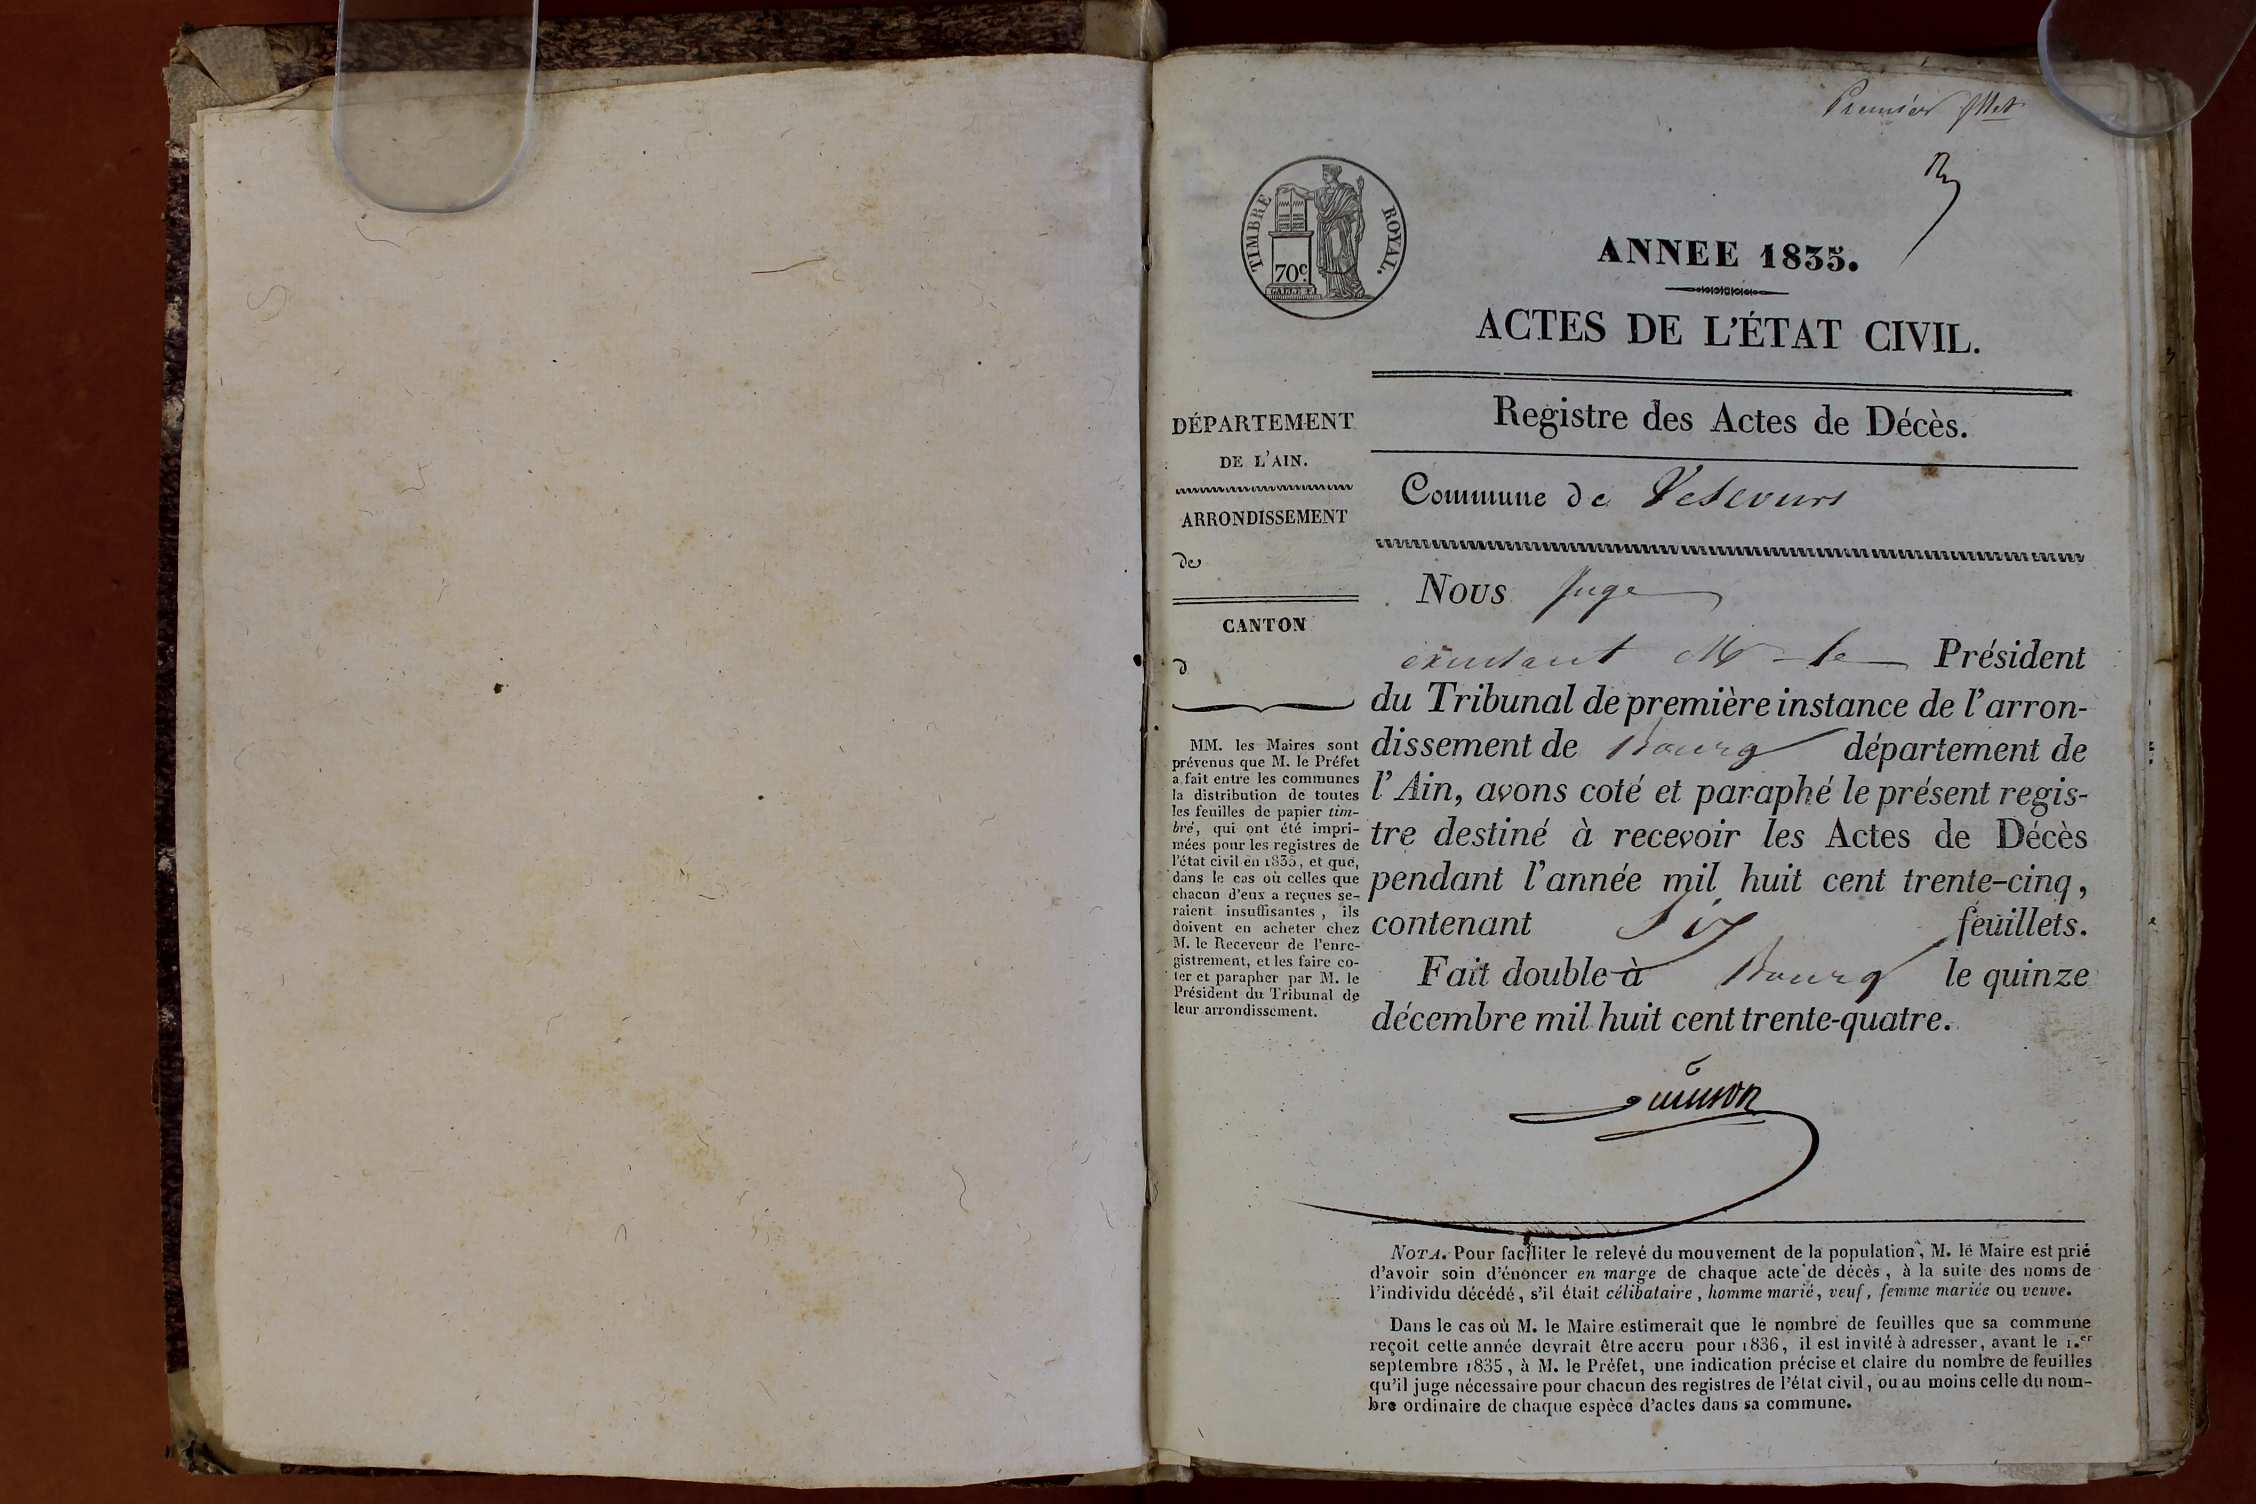 Premier
TIMBRE ROYAL.
70c.
ANNEE 1835.
ACTES DE L'ÉTAT CIVIL.
Registre des Actes de Décès.
Commune de Vescours
DÉPARTEMENT
DE L'AIN.
ARRONDISSEMENT
de
CANTON
d
MM. les Maires sont
prévenus que M. le Préfet
a fait entre les communes
la distribution de toutes
les feuilles de papier tim-
bré, qui ont été impri-
mées pour les registres de
l'état civil en 1835, et que,
dans le cas où celles que
chacun d'eux a reçues se-
raient insuffisantes, ils
doivent en acheter chez
M. le Receveur de l'enre-
gistrement, et les faire co-
ter et parapher par M. le
Président du Tribunal de
leur arrondissement.
Nous Juge
exerçant Mr le Président
du Tribunal de première instance de l'arron-
dissement de Bourg département de
l'Ain, avons coté et paraphé le présent regis-
tre destiné à recevoir les Actes de Décès
pendant l'année mil huit cent trente-cinq,
contenant Six feuillets.
Fait double à Bourg le quinze
décembre mil huit cent trente-quatre.
NOTA. Pour faciliter le relevé du mouvement de la population, M. le Maire est prié
d'avoir soin d'énoncer en marge de chaque acte de décès, à la suite des noms de
l'individu décédé, s'il était célibataire, homme marié, veuf, femme mariée ou veuve.
Dans le cas où M. le Maire estimerait que le nombre de feuilles que sa commune
reçoit cette année devrait être accru pour 1836, il est invité à adresser, avant le 1.er
septembre 1835, à M. le Préfet, une indication précise et claire du nombre de feuilles
qu'il juge nécessaire pour chacun des registres de l'état civil, ou au moins celle du nom-
bre ordinaire de chaque espèce d'actes dans sa commune.